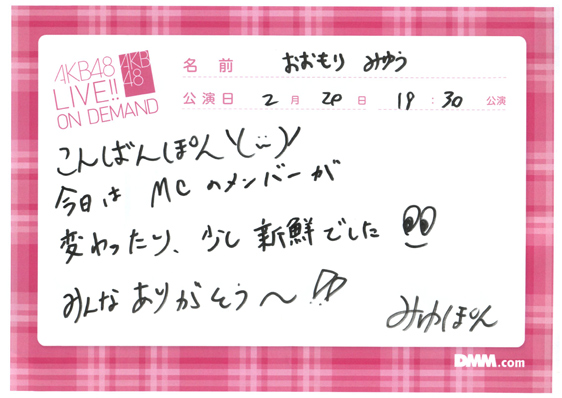 AKB48
LIVE!!
ON DEMAND
AKB
48
名前 おおもり みゆう
公演日 2月 20日 19:30 公演
こんばんぽん\(¨)/
今日は MCのメンバーが
変わったり、少し新鮮でした
みんなありがとう〜!!
みゆぽん
DMM.com